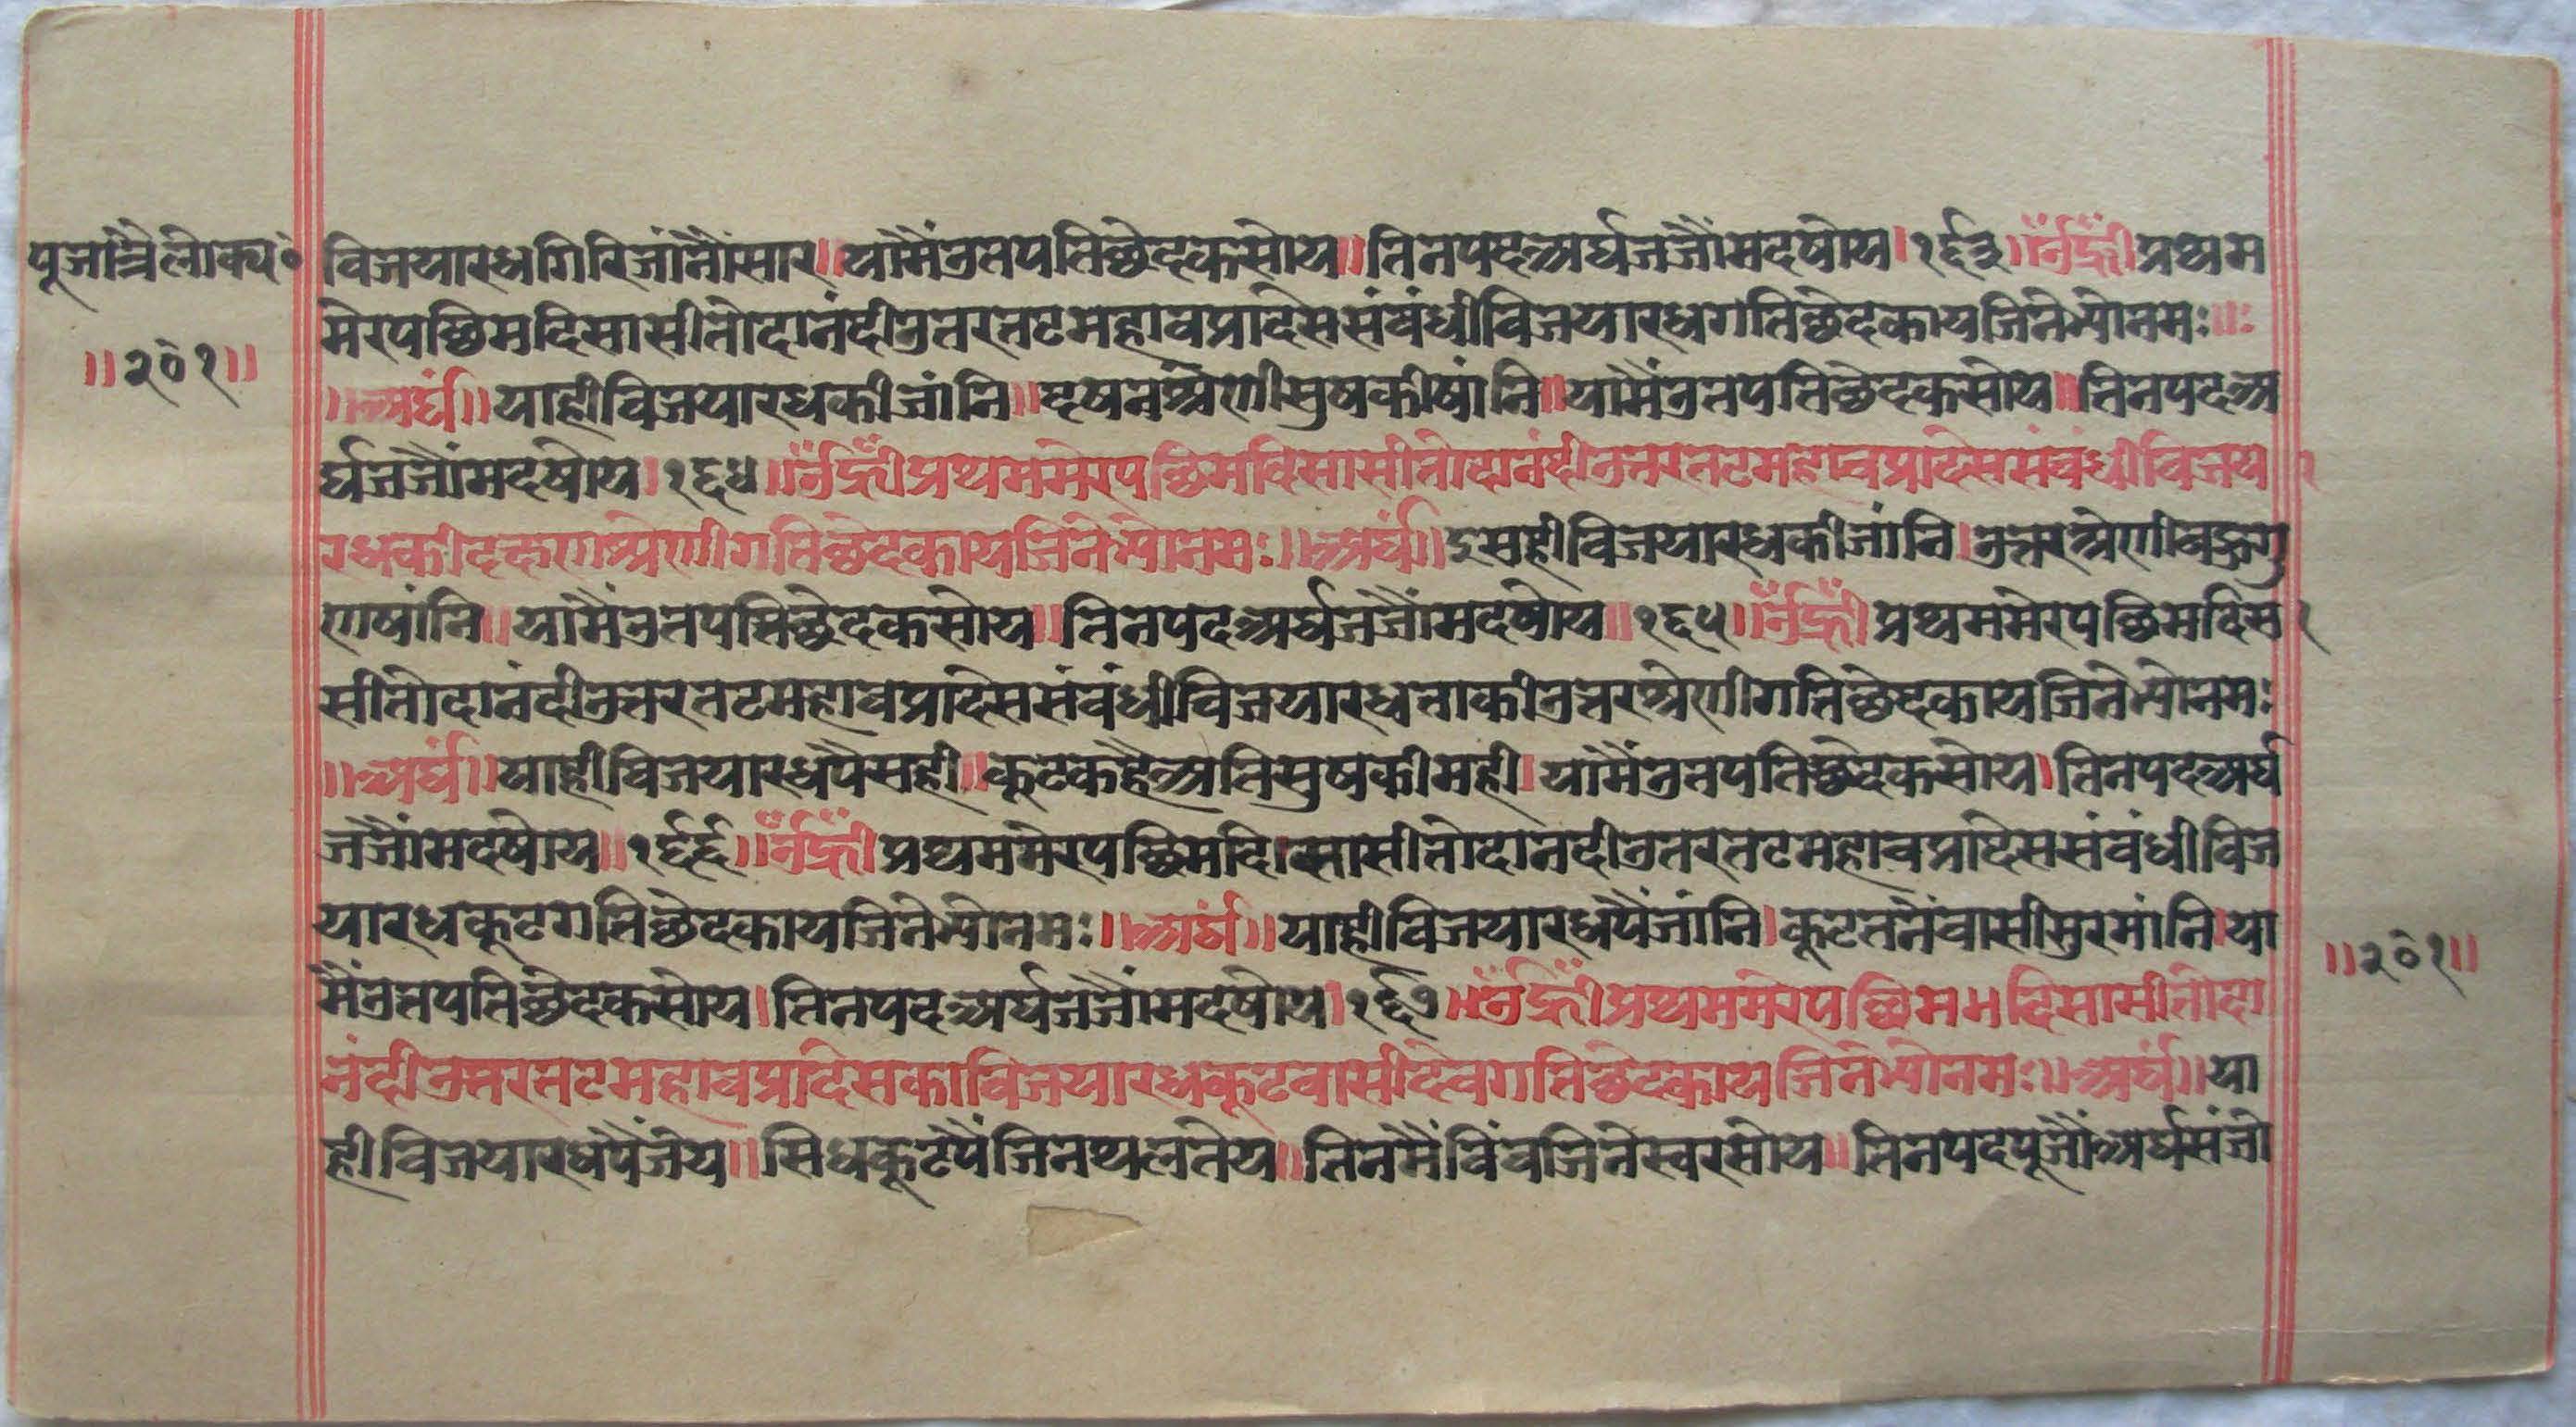 पूजांत्रैलोक्य॰
॥२०१॥
विजयारधगिरिजांनौंसार॥यामैंउतपतिछेदकसोय॥तिनपदअर्घजजौंमदषोय।१६३॥ॐह्रींप्रथम
मेरपछिमदिसासीतोदानंदीउतरतटमहावप्रादेससंबंधीविजयारधगतिछेदकायजिनेभ्योनमः॥
॥अर्घं॥याहीविजयारधकीजांनि॥दषनश्रेणीसुषकीषांनि॥यामैंउतपतिछेदकसोय॥तिनपदअ
र्घजजौंमदषोय।१६४॥ॐह्रींप्रथममेरपछिमदिसासीतोदानंदीउतरतटमहावप्रादेससंबंधीविजया
रधकीदक्षणश्रेणीगतिछेदकायजिनेभ्योनमः॥अर्घं॥इसहीविजयारधकीजांनि।उत्तरश्रेणीबहुगु
णषांनि॥यामैंउतपतिछेदकसोय॥तिनपदअर्घजजौंमदषोय॥१६५॥ॐह्रींप्रथममेरपछिमदिसा
सीतोदानंदीउत्तरतटमहावप्रादेससंबंधीविजयारधताकीउत्तरश्रेणीगतिछेदकायजिनेभ्योनमः
॥अर्घं॥याहीविजयारधपैसही॥कूटकहैअतिसुषकीमही।यामैंउतपतिछेदकसोय।तिनपदअर्घ
जजौंमदषोय॥१६६॥ॐह्रींप्रथममेरपछिमदिसासीतोदानदीउतरतटमहावप्रादेससंबंधीविज
यारधकूटगतिछेदकायजिनेभ्योनमः॥अर्घं॥याहीविजयारधपैंजांनि।कूटतनैंवासीसुरमांनि।या
मैंउतपतिछेदकसोय।तिनपदअर्घजजौंमदषोय।१६७॥ॐह्रींप्रथममेरपछिममदिसासीतोदा
नंदीउत्तरतटमहावप्रादेसकाविजयारधकूटवासीदेवगतिछेदकायजिनेभ्योनमः॥अर्घं॥या
हीविजयारधपैंजेय॥सिधकूटपैंजिनथलतेय॥तिनमैंविंवजिनेस्वरसोय॥तिनपदपूजौंअर्घसंजो
॥२०१॥